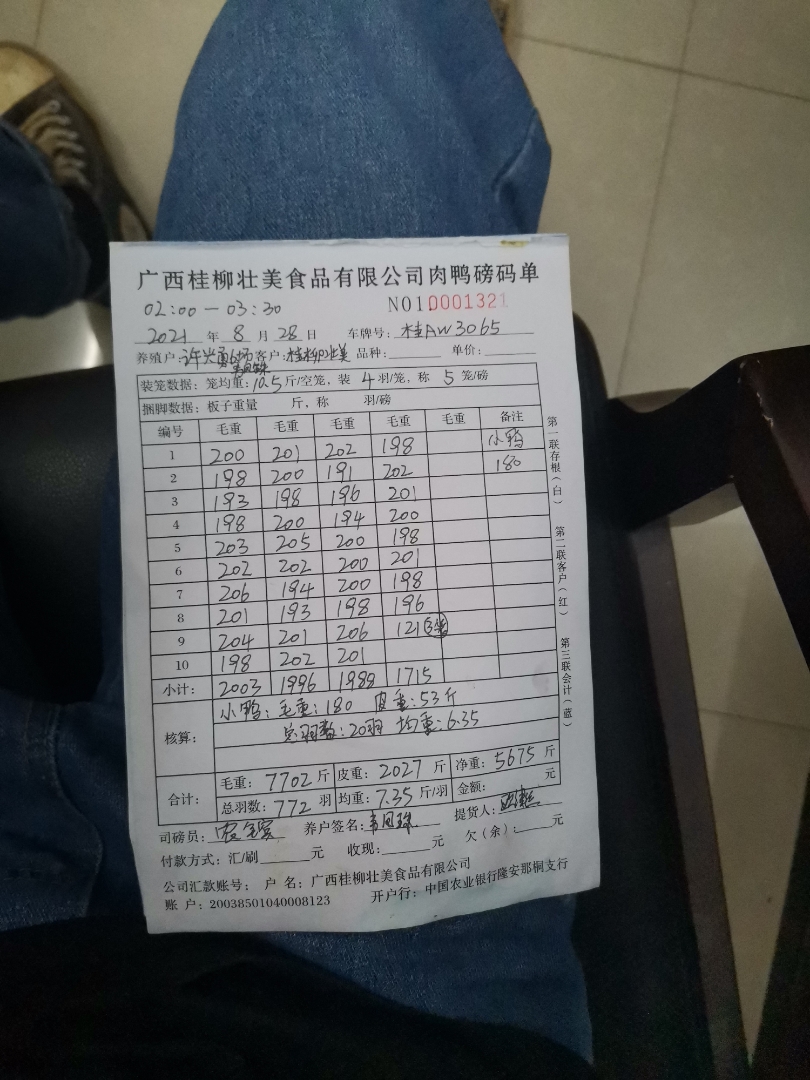 广西桂柳壮美食品有限公司肉鸭磅码单
02:00—03:30 NO10001321
2021年8月28日 车牌号:桂AW3065
养殖户:许兴勇 客户:桂柳壮美 品种: 单价:
装笼数据:笼均重:10.5斤/空笼,装4羽/笼,称5笼/磅
捆脚数据:板子重量 斤,称 羽/磅
编号 毛重 毛重 毛重 毛重 毛重 备注
1 200 201 202 198 小鸭
2 198 200 191 202 180
3 193 198 196 201
4 198 200 194 200
5 203 205 200 198
6 202 202 200 201
7 206 194 200 198
8 201 193 198 196
9 204 201 206 121
10 198 202 201
小计: 2003 1996 1988 1715
核算: 小鸭:毛重:180 皮重:53斤
总羽数:20羽 均重:6.35
合计: 毛重:7702斤 皮重:2027斤 净重:5675斤
总羽数:772羽 均重:7.35斤/羽 金额: 元
司磅员: 养户签名: 提货人:
付款方式:汇/刷 元 收现: 元 欠(余): 元
公司汇款账号: 户 名:广西桂柳壮美食品有限公司
账 户:20038501040008123 开户行:中国农业银行隆安那桐支行
第一联存根(白)
第二联客户(红)
第三联会计(蓝)